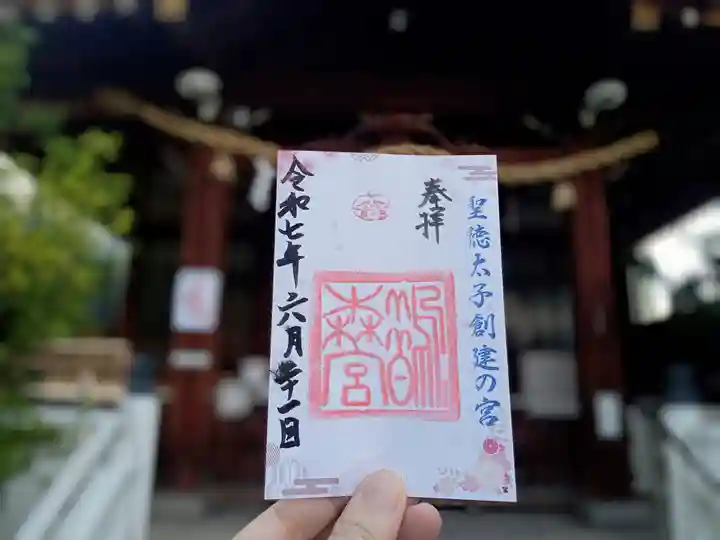 聖徳太子創建の宮
奉拝
鵲
森宮
令和七年六月廿一日